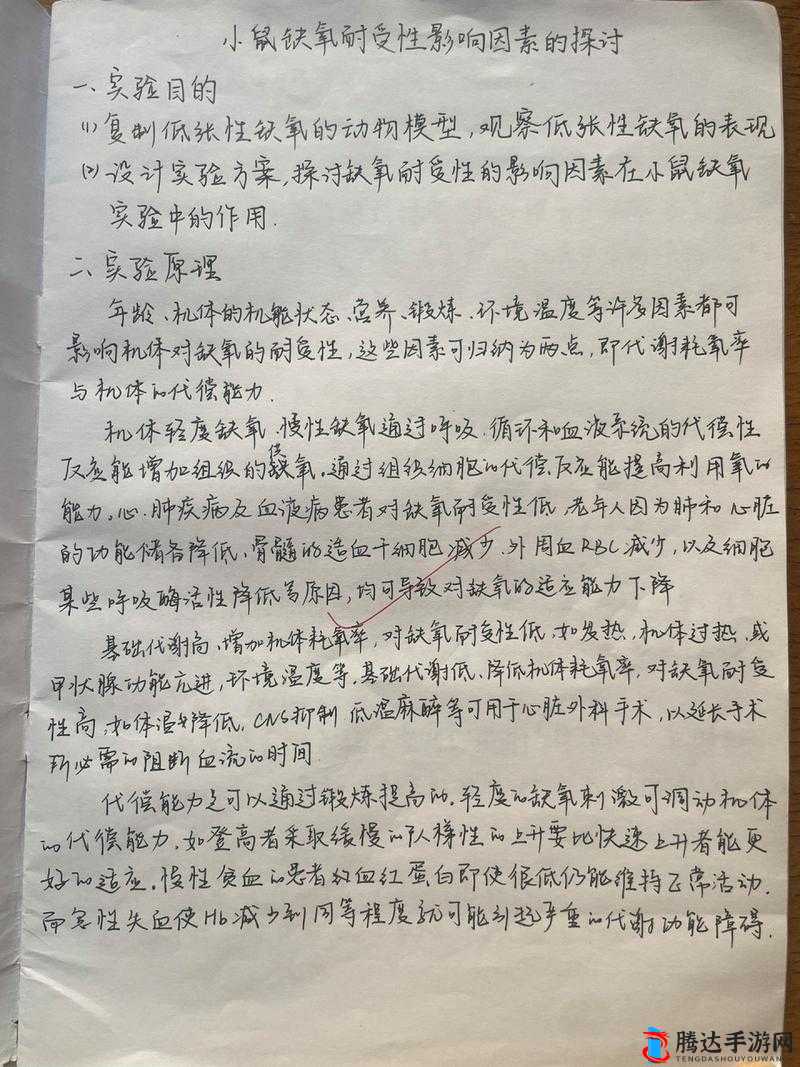 小鼠缺氧耐受性影响因素的探讨
一、实验目的
(1) 复制低张性缺氧的动物模型,观察低张性缺氧的表现
(2) 设计实验方案,探讨缺氧耐受性的影响因素在小鼠缺氧
实验中的作用.
二、实验原理
年龄、机体的机能状态、营养、锻炼、环境温度等许多因素都可
影响机体对缺氧的耐受性,这些因素可归纳为两点,即代谢耗氧率
与机体的代偿能力.
机体轻度缺氧、慢性缺氧通过呼吸、循环和血液系统的代偿性
反应能增加组织的供氧。通过组织细胞的代偿反应能提高利用氧的
能力。心、肺疾病及血液病患者对缺氧耐受性低,老年人因为肺和心脏
的功能储备降低、骨髓的造血干细胞减少、外周血RBC减少,以及细胞
某些呼吸酶活性降低等原因,均可导致对缺氧的适应能力下降
基础代谢高、增加机体耗氧率,对缺氧耐受性低.如发热、机体过热、或
甲状腺功能亢进,环境温度等.基础代谢低、降低机体耗氧率,对缺氧耐受
性高,如体温降低、CNS抑制 低温麻醉等可用于心脏外科手术,以延长手术
所必需的阻断血流的时间.
代偿能力是可以通过锻炼提高的.轻度的缺氧刺激可调动机体
的代偿能力.如登高者采取缓慢的阶梯性的上升要比快速上升者能更
好的适应.慢性贫血的患者的血红蛋白即使很低仍能维持正常活动.
而急性失血使Hb减少到同等程度就可能引起严重的代谢功能障碍.
腾达手游网
TENGDASHOUYOUWANG